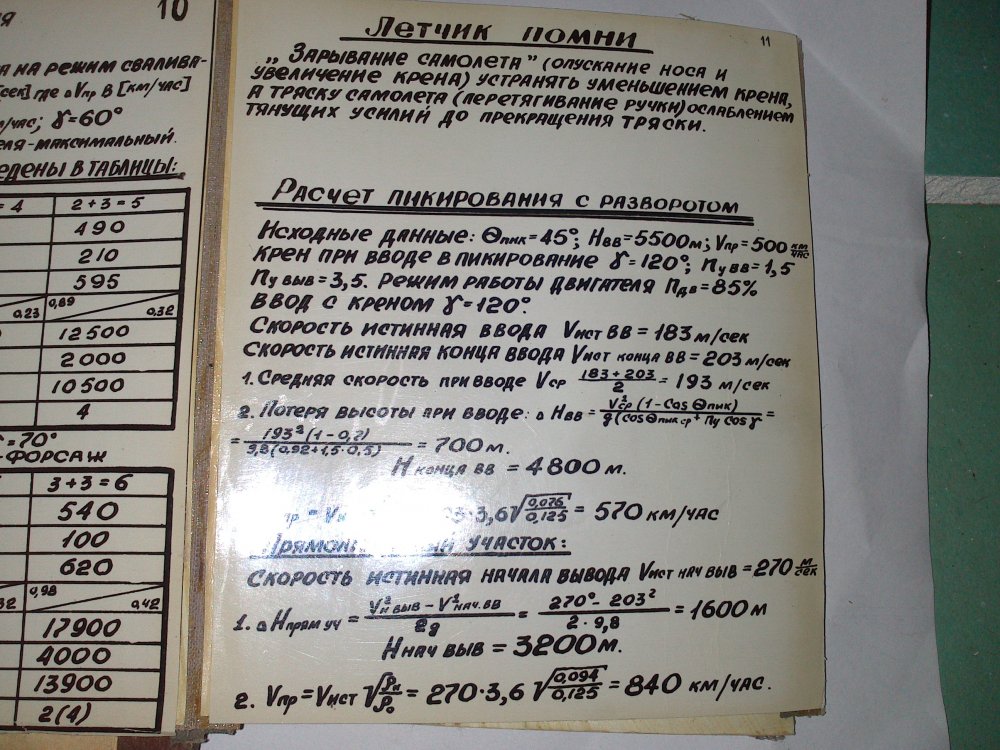 я
10
а на режим свалива-
[сек] где ΔVпр в [км/час]
м/час; γ=60°
еля-максимальный.
едены в таблицы:
= 4 2+3=5
490
210
595
0,23 0,89 0,32
12500
2000
10500
4
=70°
-форсаж
3+3=6
540
100
620
32 0,98 0,42
17900
4000
13900
2(4)
11
Летчик помни
„Зарывание самолета" (опускание носа и
увеличение крена) устранять уменьшением крена,
а тряску самолета (перетягивание ручки) ослаблением
тянущих усилий до прекращения тряски.
Расчет пикирования с разворотом
Исходные данные: Θпик=45°; Hвв=5500м; Vпр=500 км/час
крен при вводе в пикирование γ=120°; nу вв=1,5
nу выв=3,5. Режим работы двигателя nдв=85%
ввод с креном γ=120°.
Скорость истинная ввода Vист вв = 183 м/сек
Скорость истинная конца ввода Vист конца вв = 203 м/сек
1. Средняя скорость при вводе Vср (183+203)/2 = 193 м/сек
2. Потеря высоты при вводе: ΔHвв = V²ср (1-Cos Θпик)/g(cosΘпик ср + nу cosγ =
= 193²(1-0,7)/9,8(0,92+1,5·0,5) = 700 м.
H конца вв = 4800 м.
пр = Vи 3·3,6√0,076/0,125 = 570 км/час
Прямол участок:
Скорость истинная начала вывода Vист нач выв = 270 м/сек
1. ΔHпрям уч = (V²н выв - V²нач.вв)/2g = (270² - 203²)/2·9,8 = 1600 м
Hнач выв = 3200 м.
2. Vпр = Vист √ρн/ρо = 270·3,6 √0,094/0,125 = 840 км/час.